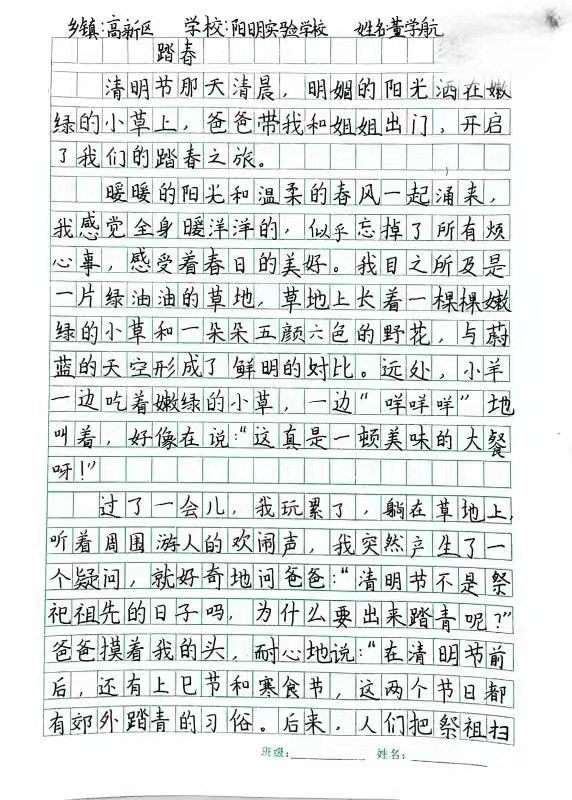 乡镇:高新区 学校:阳明实验学校 姓名:董学航
踏春
清明节那天清晨，明媚的阳光洒在嫩
绿的小草上，爸爸带我和姐姐出门，开启
了我们的踏春之旅。
暖暖的阳光和温柔的春风一起涌来，
我感觉全身暖洋洋的，似乎忘掉了所有烦
心事，感受着春日的美好。我目之所及是
一片绿油油的草地，草地上长着一棵棵嫩
绿的小草和一朵朵五颜六色的野花，与蔚
蓝的天空形成了鲜明的对比。远处，小羊
一边吃着嫩绿的小草，一边“咩咩咩”地
叫着，好像在说:“这真是一顿美味的大餐
呀!”
过了一会儿，我玩累了，躺在草地上，
听着周围游人的欢闹声，我突然产生了一
个疑问，就好奇地问爸爸:“清明节不是祭
祀祖先的日子吗，为什么要出来踏青呢?”
爸爸摸着我的头，耐心地说:“在清明节前
后，还有上巳节和寒食节，这两个节日都
有郊外踏青的习俗。后来，人们把祭祖扫
班级: 姓名: